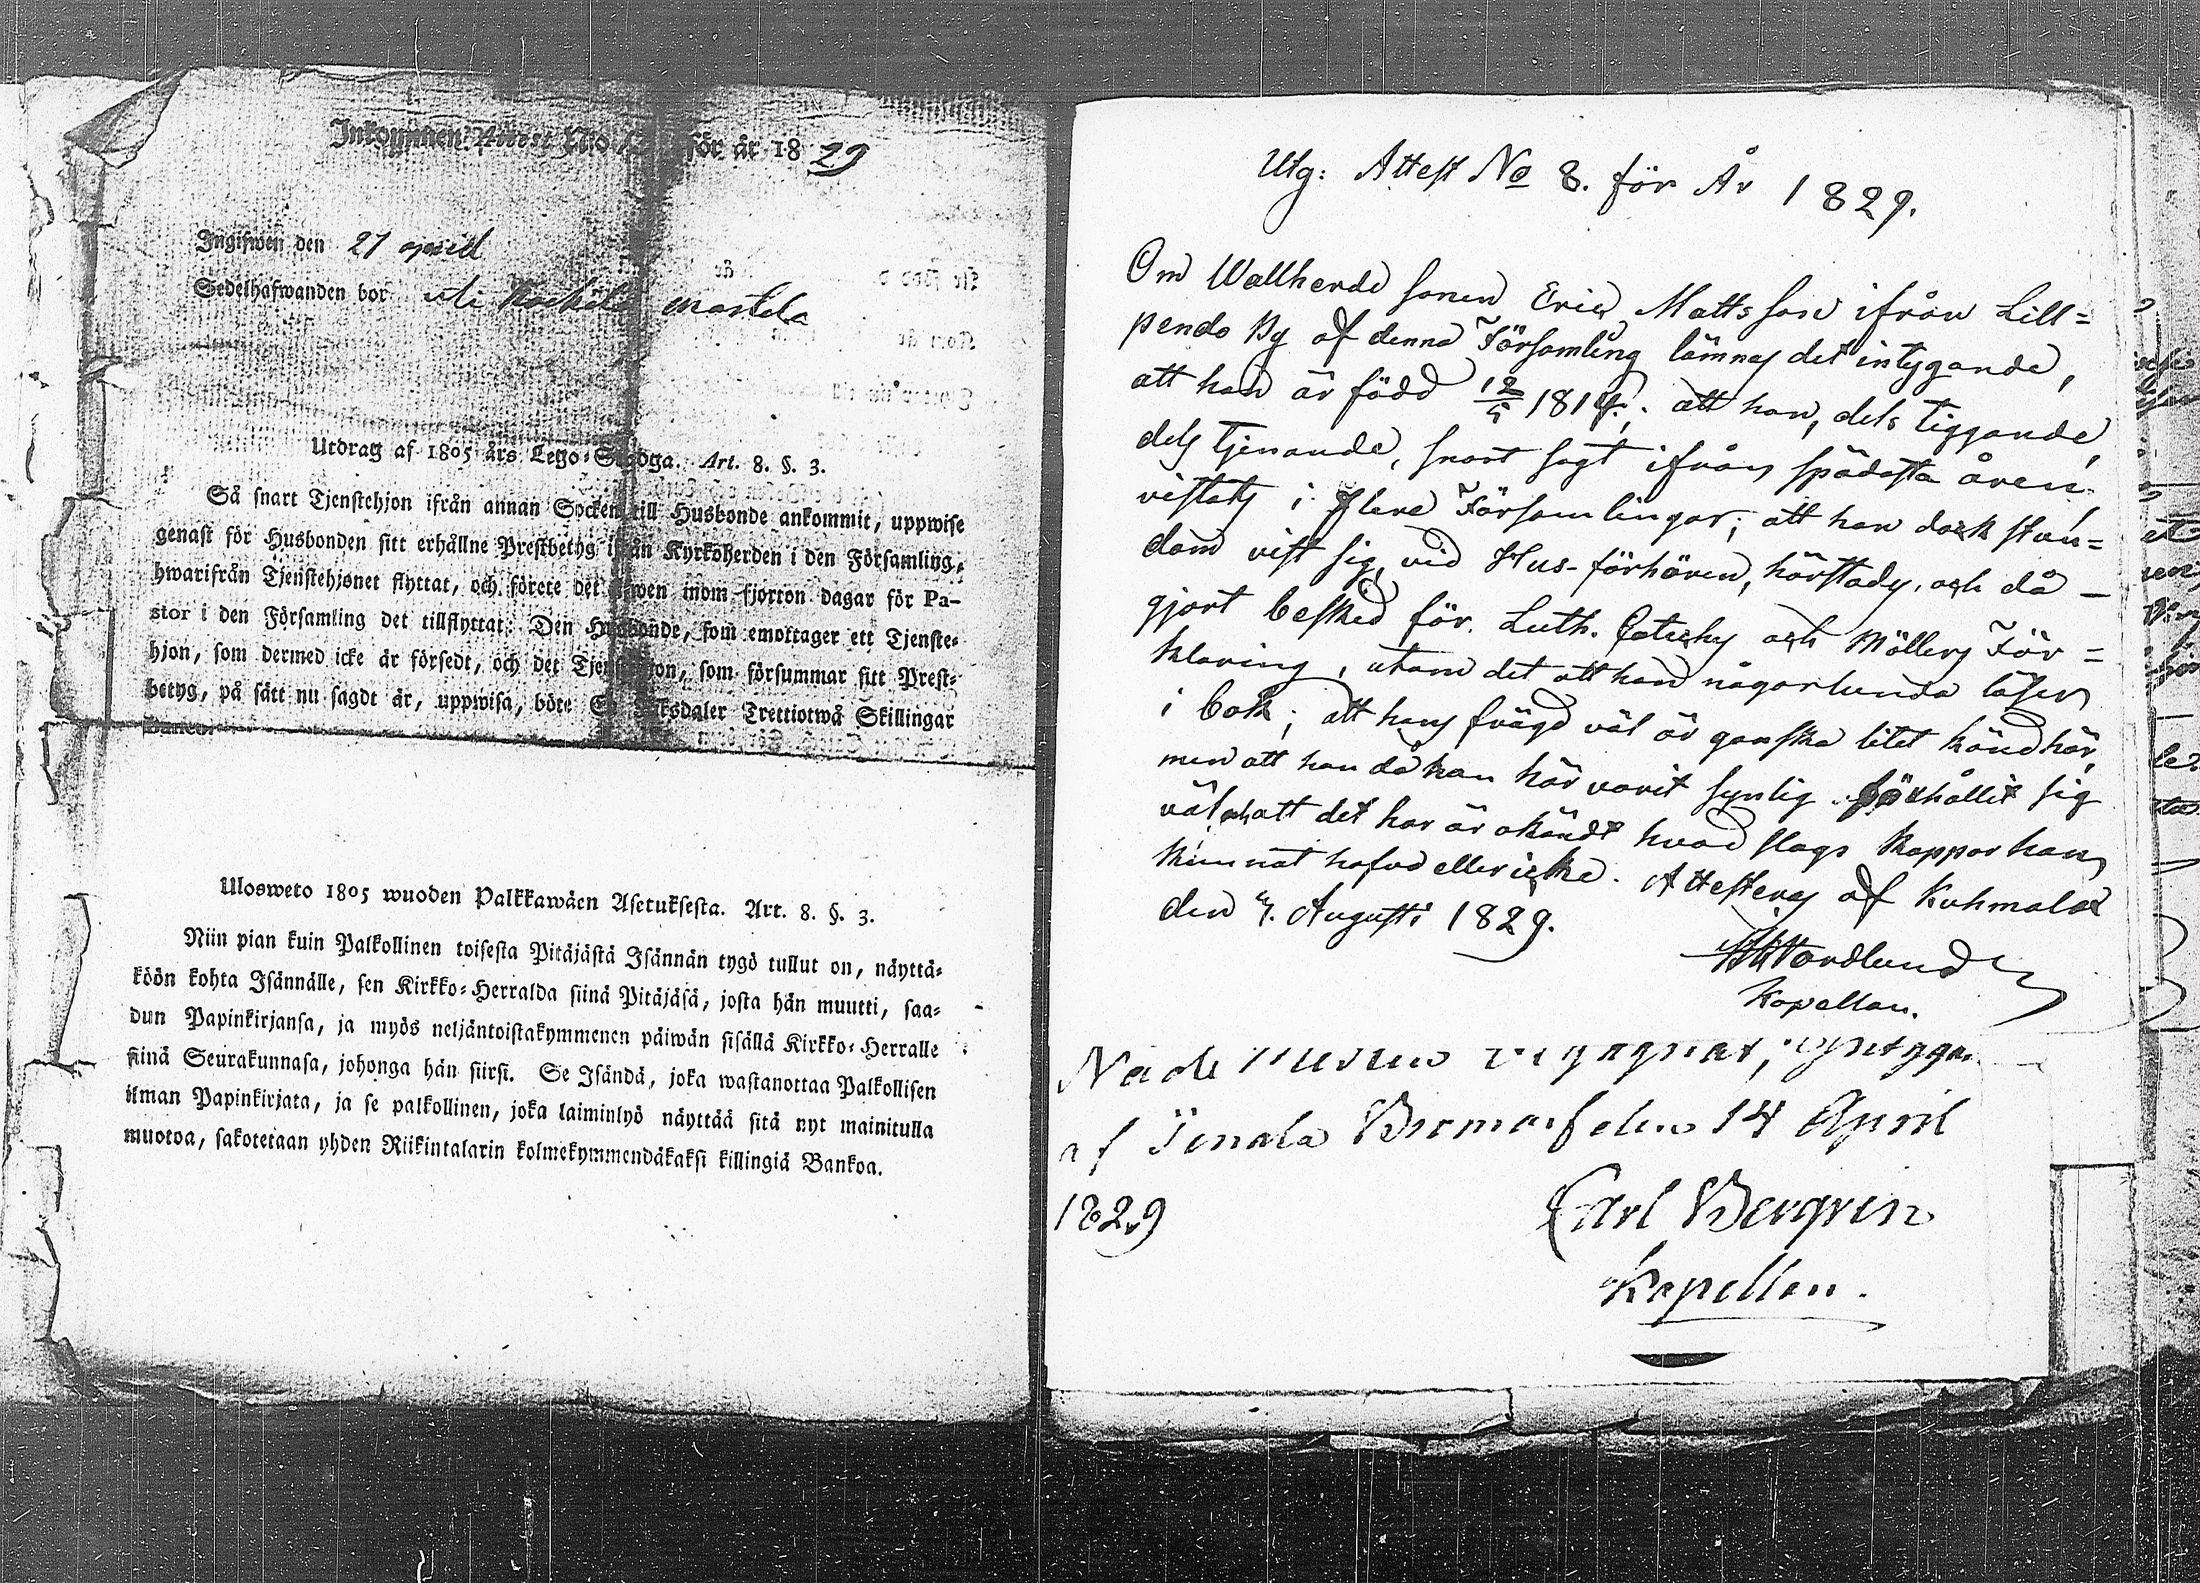 Inkommen Attest No för år 1829
Ingifwen den 27 april
Sedelhafwanden bor uti
Utdrag af 1805 års Lego-Stadga. Art. 8. §. 3.
Så snart Tjenstehjon ifrån annan Socken till Husbonde ankommit, uppwise
genast för Husbonden sitt erhållne Prestbetyg ifrån Kyrkoherden i den Församling,
hwarifrån Tjenstehjonet flyttat, och förete det äfwen inom fjorton dagar för Pa-
stor i den Församling det tillflyttat. Den Husbonde, som emottager ett Tjenste-
hjon, som dermed icke är försedt, och det Tjenstehjon, som försummar sitt Prest-
betyg, på sätt nu sagdt är, uppwisa, böte En Riksdaler Trettiotwå Skillingar
Banco.
Ulosweto 1805 wuoden Palkkawäen Asetuksesta. Art. 8. §. 3.
Niin pian kuin Palkollinen toisesta Pitäjästä Isännän tygö tullut on, näyttä-
köön kohta Isännälle, sen Kirkko-Herralda siinä Pitäjäsä, josta hän muutti, saa-
dun Papinkirjansa, ja myös neljäntoistakymmenen päiwän sisällä Kirkko-Herralle
siinä Seurakunnasa, johonga hän siirsi. Se Isändä, joka wastanottaa Palkollisen
ilman Papinkirjata, ja se palkollinen, joka laiminlyö näyttää sitä nyt mainitulla
muotoa, sakotetaan yhden Riikintalarin kolmekymmendäkaksi killingiä Bankoa.
Utg: Attest No 8. för År 1829.
Om Wallherde sonen Eric Mattsson ifrån Lill=
pendo By af denna Församling lämnas det intygande,
att han är född 12/5 1814; att han, dels tiggande,
dels tjenande, snart sagt ifrån spädasta åren,
vistats i flere Församlingar; att han dock stun=
dom vist sig, vid Hus-förhören, härstads, och då
gjort besked för Luth. Cateches och Möllers För=
klaring, utom det att han någorlunda läser
i bok; att hans frägd väl är ganska litet känd här,
men att han då han här varit synlig förhållit sig
väl, och att det här är okändt hvad slags Koppor han
kunnat hafva eller icke. Attesteras af Kuhmalax
den 4. Augusti 1829.
Nordlund
Kapellan.
af Tenala Bromarf den 14 April
1829
Carl Bergren
Kapellan.